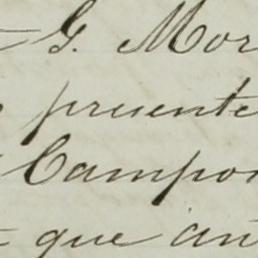 G. Mor
presente
Campo
que an